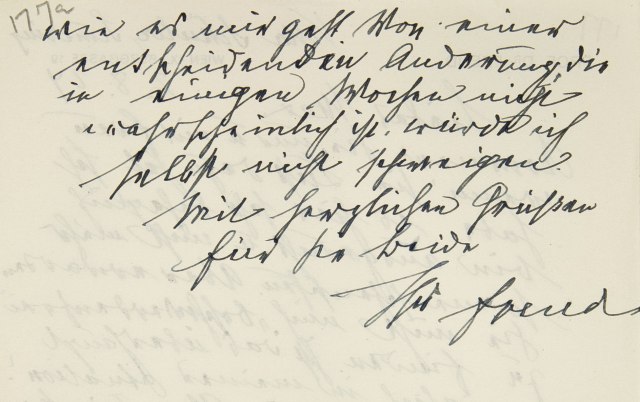 177a
wie es mir geht. Von einer
entscheidenden Änderung, die
in einigen Wochen nicht
unwahrscheinlich ist, würde ich
selbst nicht schweigen.
Mit herzlichen Grüßen
für Sie beide
Ihr Freud